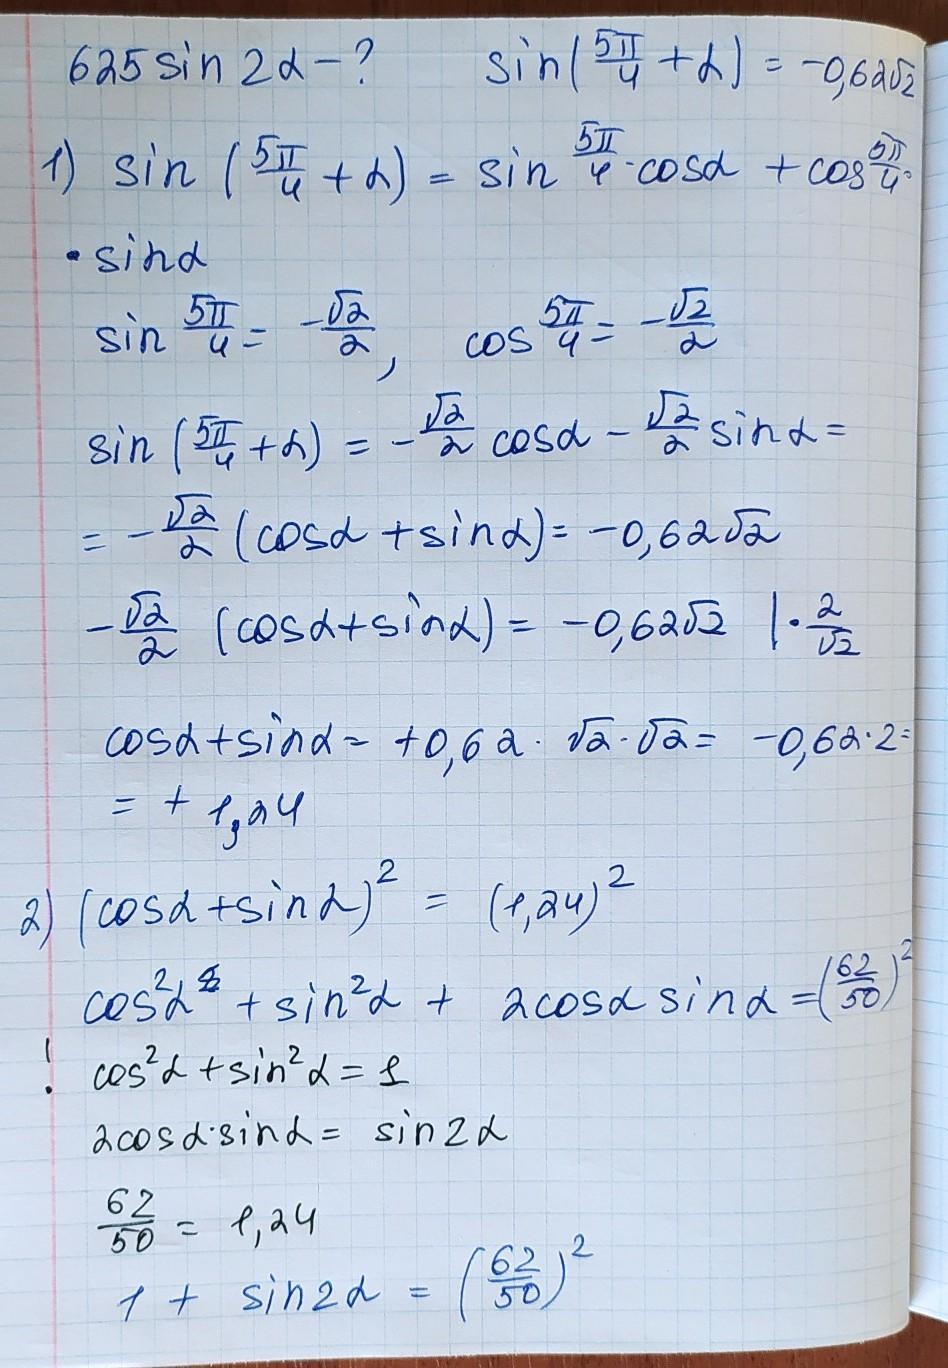 625 sin 2α - ? sin(5π/4 + α) = -0,62√2
1) sin (5π/4 + α) = sin 5π/4 · cosα + cos 5π/4 ·
· sinα
sin 5π/4 = -√2/2, cos 5π/4 = -√2/2
sin (5π/4 + α) = -√2/2 cosα - √2/2 sinα =
= -√2/2 (cosα + sinα) = -0,62√2
-√2/2 (cosα + sinα) = -0,62√2 | · 2/√2
cosα + sinα = +0,62 · √2 · √2 = -0,62 · 2 =
= + 1,24
2) (cosα + sinα)² = (1,24)²
cos²α + sin²α + 2cosα sinα = (62/50)²
! cos²α + sin²α = 1
2cosα · sinα = sin2α
62/50 = 1,24
1 + sin2α = (62/50)²